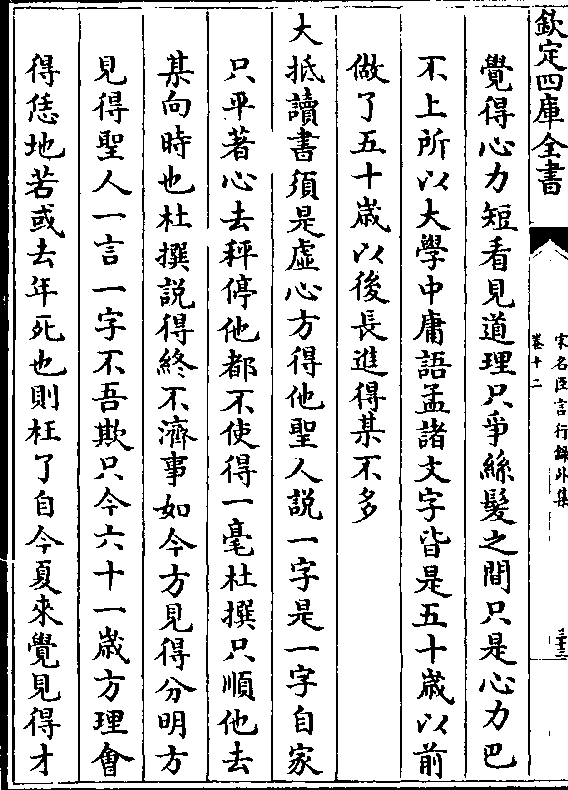 欽定四庫全書
宋名臣言行錄外集
卷十二
三十三
覺得心力短看見道理只爭絲髮之間只是心力巴
不上所以大學中庸語孟諸文字皆是五十歲以前
做了五十歲以後長進得某不多
大抵讀書須是虛心方得他聖人說一字是一字自家
只平著心去秤停他都不使得一毫杜撰只順他去
某向時也杜撰説得終不濟事如今方見得分明方
見得聖人一言一字不吾欺只今六十一歲方理會
得恁地若或去年死也則枉了自今夏來覺見得才